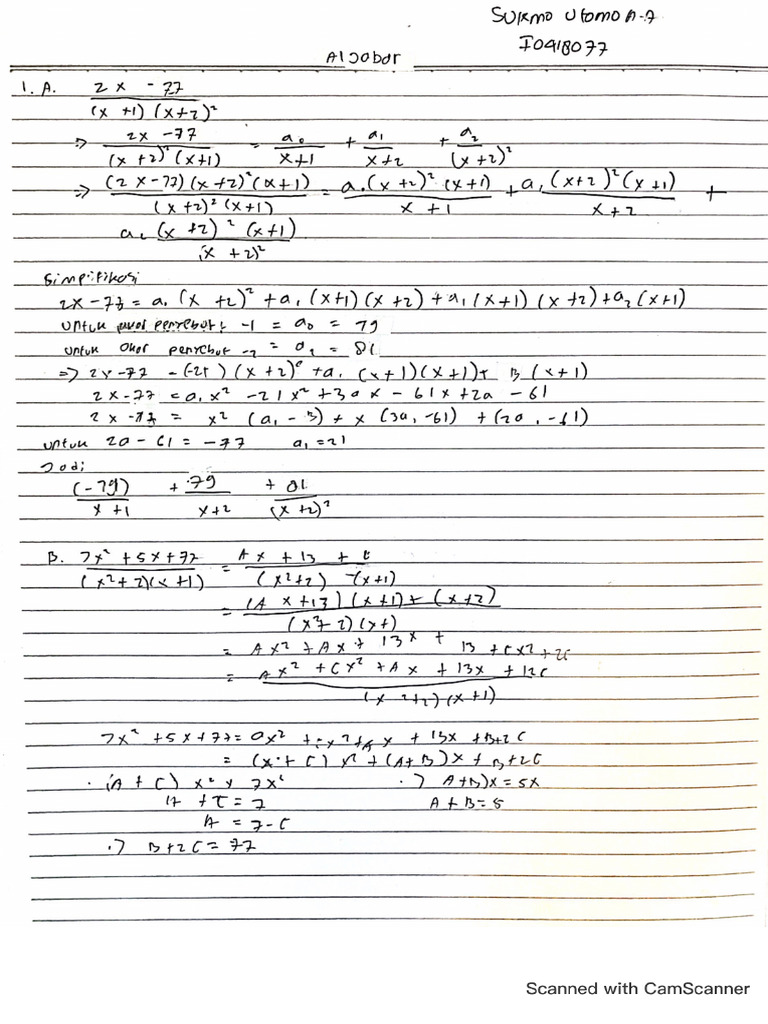 SUKMO UTOMO A-7
I0418077
Aljabar
1. A. 2x - 77
(x +1) (x+2)²
⇒ 2x -77 = a₀ + a₁ + a₂
(x +2)² (x+1) x+1 x+2 (x+2)²
⇒ (2x-77)(x+2)²(x+1) = a₀(x+2)² (x+1) + a₁(x+2)²(x+1) +
(x+2)² (x+1) x + 1 x+2
a₂ (x+2)² (x+1)
(x +2)²
Simplifikasi
2x-77 = a₀ (x +2)² + a₁ (x+1)(x+2) + a₁(x+1)(x+2)+a₂(x+1)
Untuk penyebut -1 = a₀ = 79
untuk akar penyebut -2 = a₂ = 81
2x-77 = a₁x² -21x² +3ax - 61x+2a - 61
2x-77 = x² (a₁ - 3) + x (3a₁-61) + (20, -61)
untuk 20 - 61 = -77 a₁=21
Jadi
(-79) + 79 + 81
x+1 x+2 (x+2)²
B. 7x² +5x+77 = Ax + 13 + C
(x²+2)(x+1) (x²+2) (x+1)
= (Ax+13)(x+1)+(x+2)
= Ax² + Ax + 13x + 13 + Cx2 + 2C
= Ax² + Cx² + Ax + 13x + 12C
(x²+2)(x+1)
7x² +5x+77= ax² + cx²+Ax + 13x +B+2C
= (x + C) x² +(A+B)x + B+2C
(A + C) x² 7x² ∴) A+B)x = 5x
A + C = 7 A+B=5
A = 7-C
∴) B+2C = 77
Scanned with CamScanner